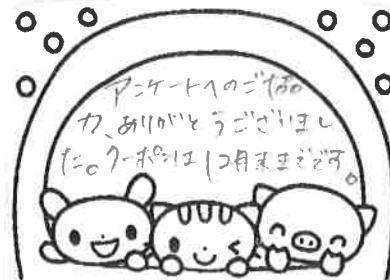 アンケートへのご協
力、ありがとうございまし
た。クーポンは12月末までです。